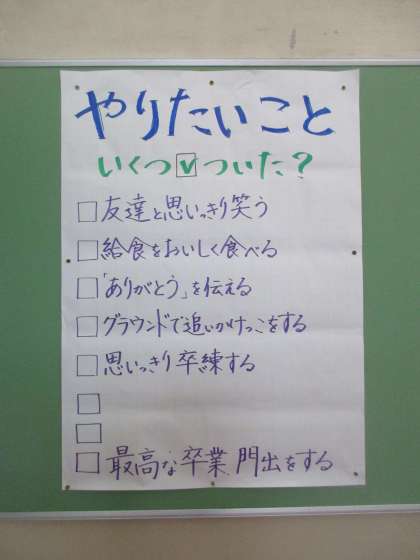 やりたいこと
いくつ☑ついた?
□友達と思いっきり笑う
□給食をおいしく食べる
□「ありがとう」を伝える
□グラウンドで追いかけっこをする
□思いっきり卒練する
□
□
□最高な卒業、門出をする